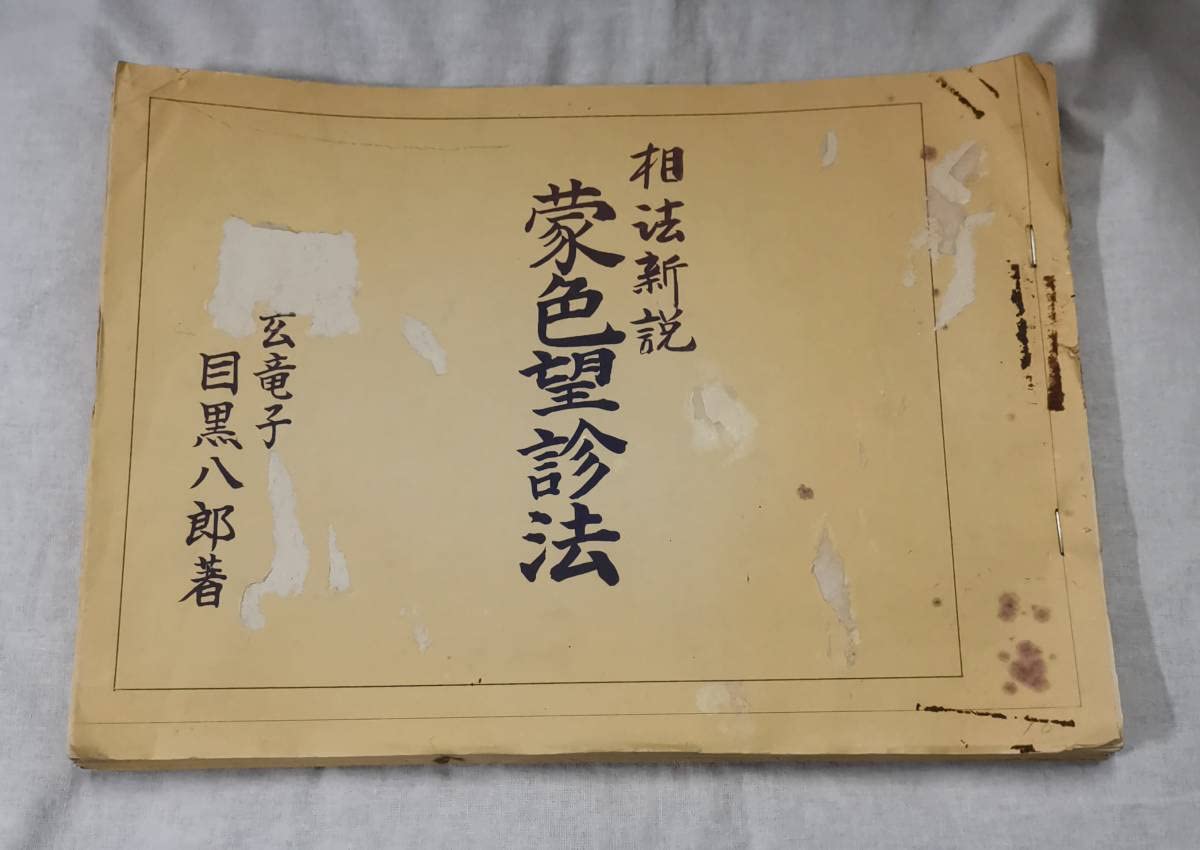 相法新説
蒙色望診法
玄竜子
目黒八郎著